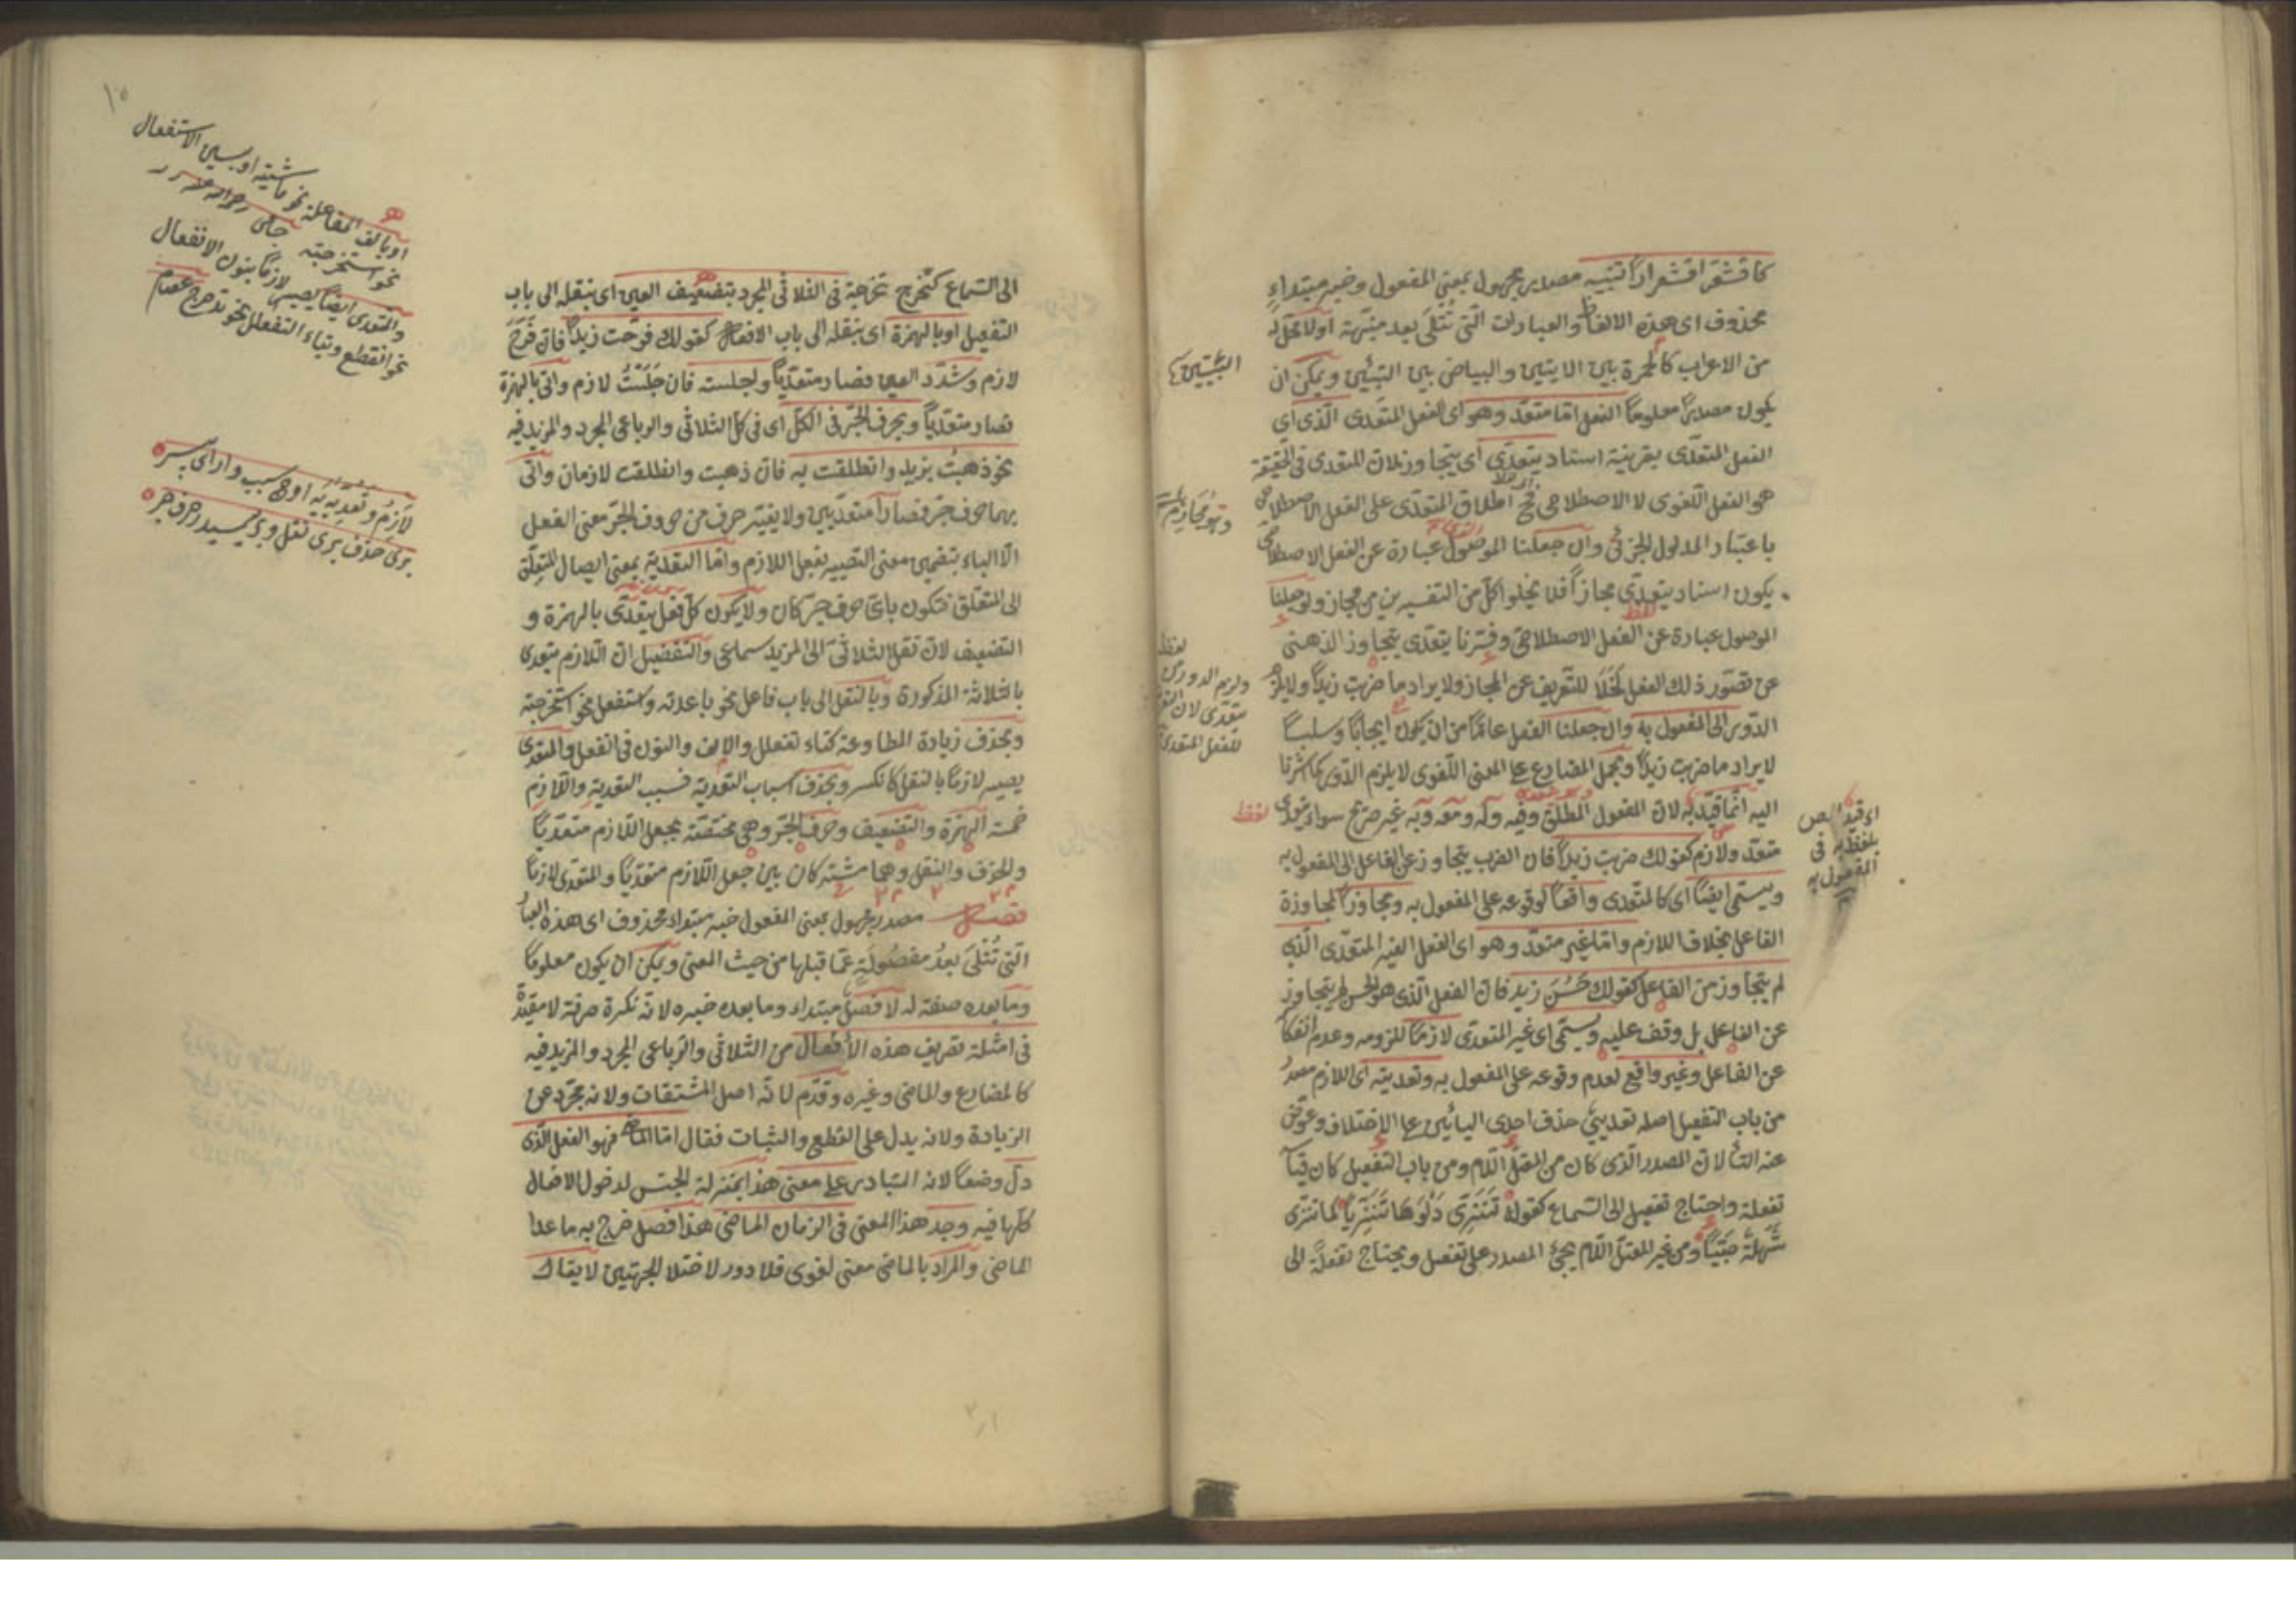 كاقشعر اقشعرارا تنبيه مصدر مجهول بمعنى المفعول وخبر مبتداء
محذوف اى هذه الالفاظ والعبارات التى تتلى بعد منبهة اولا محل له
من الاعراب كالحمرة بين الايتين والبياض بين البيتين ويمكن ان
يكون مصدرا معلوما الفعل اما متعد وهو اى الفعل المتعدى الذى اى
الفعل المتعدى بقرينة اسناد يتعدى اى يتجاوز لان المتعدى فى الحقيقة
هو الفعل اللغوى لا الاصطلاحى فح اطلاق المتعدى على الفعل الاصطلاحى
باعتبار المدلول الجزئى وان جعلنا الموصول عبارة عن الفعل الاصطلاحى
يكون اسناد يتعدى مجازا فلا يخلوا كل من التفسيرين من مجاز ولو جعلنا
الموصول عبارة عن الفعل الاصطلاحى وفسرنا يتعدى يتجاوز الذهنى
عن تصور ذلك الفعل لخلا للتعريف عن المجاز ولا يراد ما ضربت زيدا ولا يلزم
الدور الى المفعول به وان جعلنا الفعل عاما من ان يكون ايجابا وسلبا
لا يراد ما ضربت زيدا ويحمل المضارع على المعنى اللغوى لا يلزم الدور كما اشرنا
اليه انما قيد به لان المفعول المطلق وفيه وله ومعه وبه غير صريح سواء فيه
متعد ولازم كقولك ضربت زيدا فان الضرب يتجاوز عن الفاعل الى المفعول به
ويسمى ايضا اى كالمتعدى واقعا لوقوعه على المفعول به ومجاوزا لمجاوزة
الفاعل بخلاف اللازم واما غير متعد وهو اى الفعل الغير المتعدى الذى
لم يتجاوز من الفاعل كقولك حسن زيد فان الفعل الذى هو الحسن لم يتجاوز
عن الفاعل بل وقف عليه ويسمى اى غير المتعدى لازما للزومه وعدم انفكا
عن الفاعل وغير واقع لعدم وقوعه على المفعول به وتعديته اى اللازم مصدر
من باب التفعيل اصله تعديى حذف احدى اليائين على الاختلاف وعوض
عنه التاء لان المصدر الذى كان من المعتل اللام ومن باب التفعيل كان قيا
تفعلة واحتاج تفعيل الى السماع كقوله تنزى دلوها تنزيا كما تنزى
شهلة صبيا ومن غير المعتل اللام يجئ المصدر على تفعيل ويحتاج تفعلة الى
البيتين
اى قيد
بلفظ به فى
المفعول به
الى السماع كتخرج تخرجة فى الثلاثى المجرد بتضعيف العين اى بنقله الى باب
التفعيل او بالهمزة اى بنقله الى باب الافعال كقولك فرحت زيدا فان فرح
لازم وشدد العين فصار متعديا واجلسته فان جلست لازم واتى بالهمزة
فصار متعديا وبحرف الجر فى الكل اى فى كل الثلاثى والرباعى المجرد والمزيد فيه
نحو ذهبت بزيد وانطلقت به فان ذهبت وانطلقت لازمان واتى
بهما حرف جر فصارا متعديين ولا يغير حرف من حروف الجر معنى الفعل
الا الباء بتضمين معنى التصيير لفعل اللازم واما التعدية بمعنى ايصال المتعلق
الى المتعلق فتكون باى حرف جر كان ولا يكون كل فعل يتعدى بالهمزة و
التضعيف لان نقل الثلاثى الى المزيد سماعى والتفضيل ان اللازم متعدى
بالثلاثة المذكورة وبالنقل الى باب فاعل نحو باعدته واستفعل نحو استخرجته
وبحذف زيادة المطاوعة كتاء تفعلل والالف والنون فى انفعل والمتعدى
يصير لازما بالنقل كانكسر وبحذف اسباب التعدية فسبب التعدية واللازم
خمسة الهمزة والتضعيف وحرف الجر وهى مختصة بجعل اللازم متعديا
والحذف والنقل وهما مشتركان بين جعل اللازم متعديا والمتعدى لازما
فصل مصدر مجهول بمعنى المفعول خبر مبتداء محذوف اى هذه العبار
التى تتلى بعد مفصولة عما قبلها من حيث المعنى ويمكن ان يكون معلوما
وما بعده صفة له لا فصل مبتداء وما بعده خبره لانه نكرة صرفة لا مقيدة
فى امثلة تصريف هذه الافعال من الثلاثى والرباعى المجرد والمزيد فيه
كالمضارع والماضى وغيره وقدم لانه اصل المشتقات ولانه مجرد عن
الزيادة ولانه يدل على القطع والثبات فقال اما الماضى فهو الفعل الذى
دل وضعا لانه المتبادر على معنى هذا بمنزلة الجنس لدخول الافعال
كلها فيه وجد هذا المعنى فى الزمان الماضى هذا فصل خرج به ما عدا
الماضى والمراد بالماضى معنى لغوى فلا دور لاختلا الجهتين لا يقال
١٠
او بالف المفاعلة نحو ماشيته او بسين الاستفعال
نحو استخرجته
والمتعدى ايضا يصير لازما بنون الانفعال
نحو انقطع وبتاء التفعلل نحو تدحرج عصام